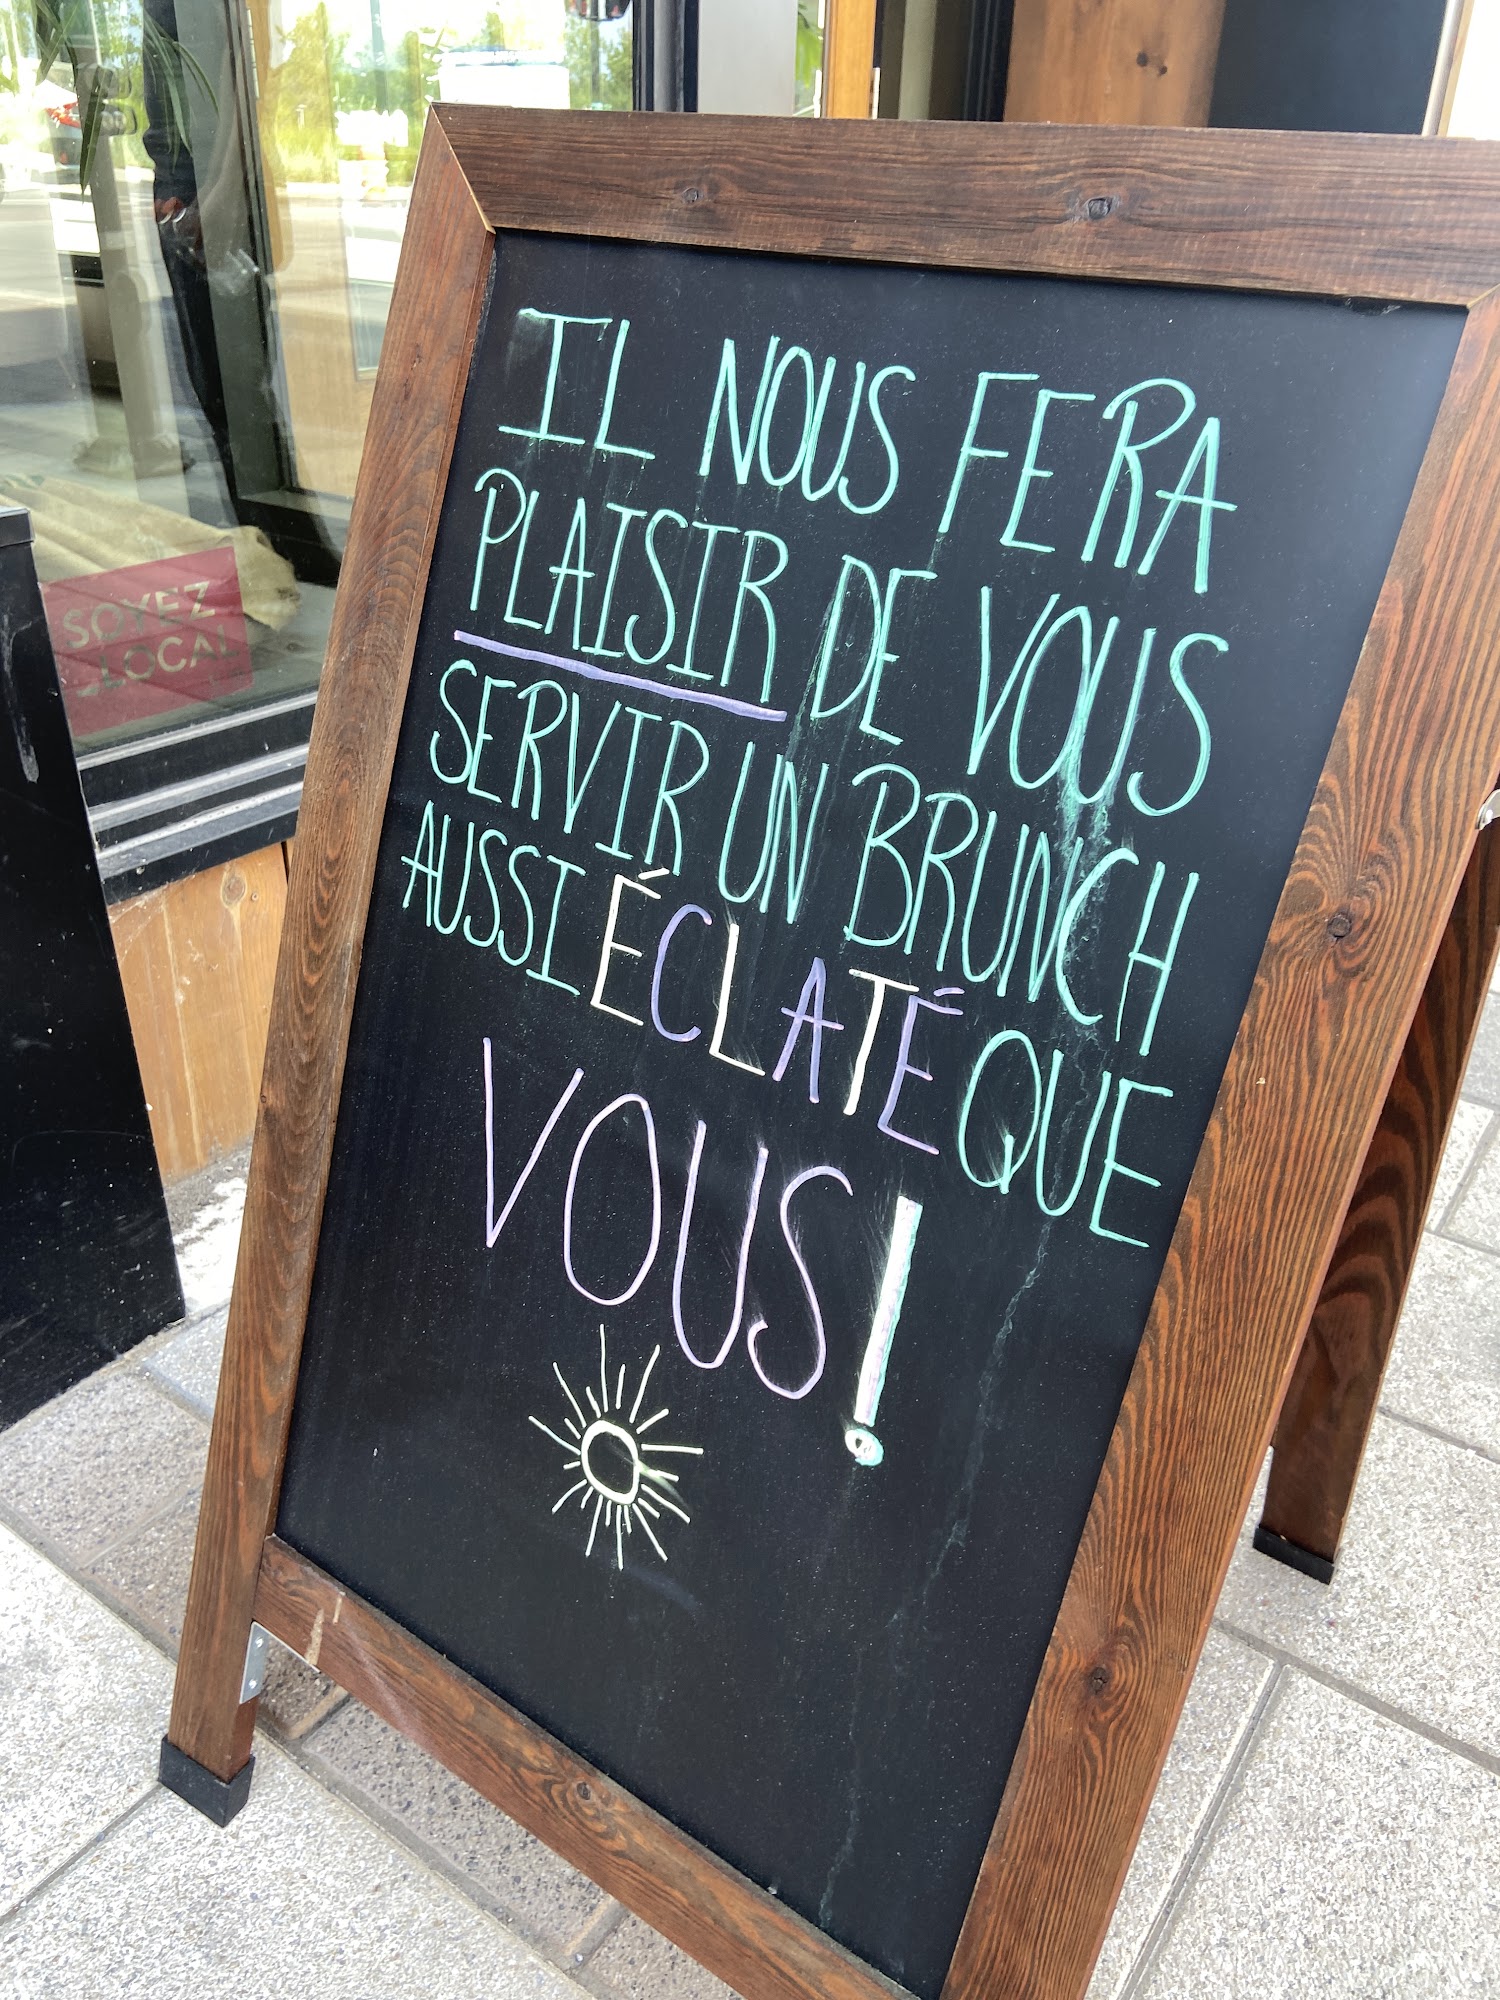 IL NOUS FERA
PLAISIR DE VOUS
SERVIR UN BRUNCH
AUSSI ÉCLATÉ QUE
VOUS!
SOYEZ
LOCAL